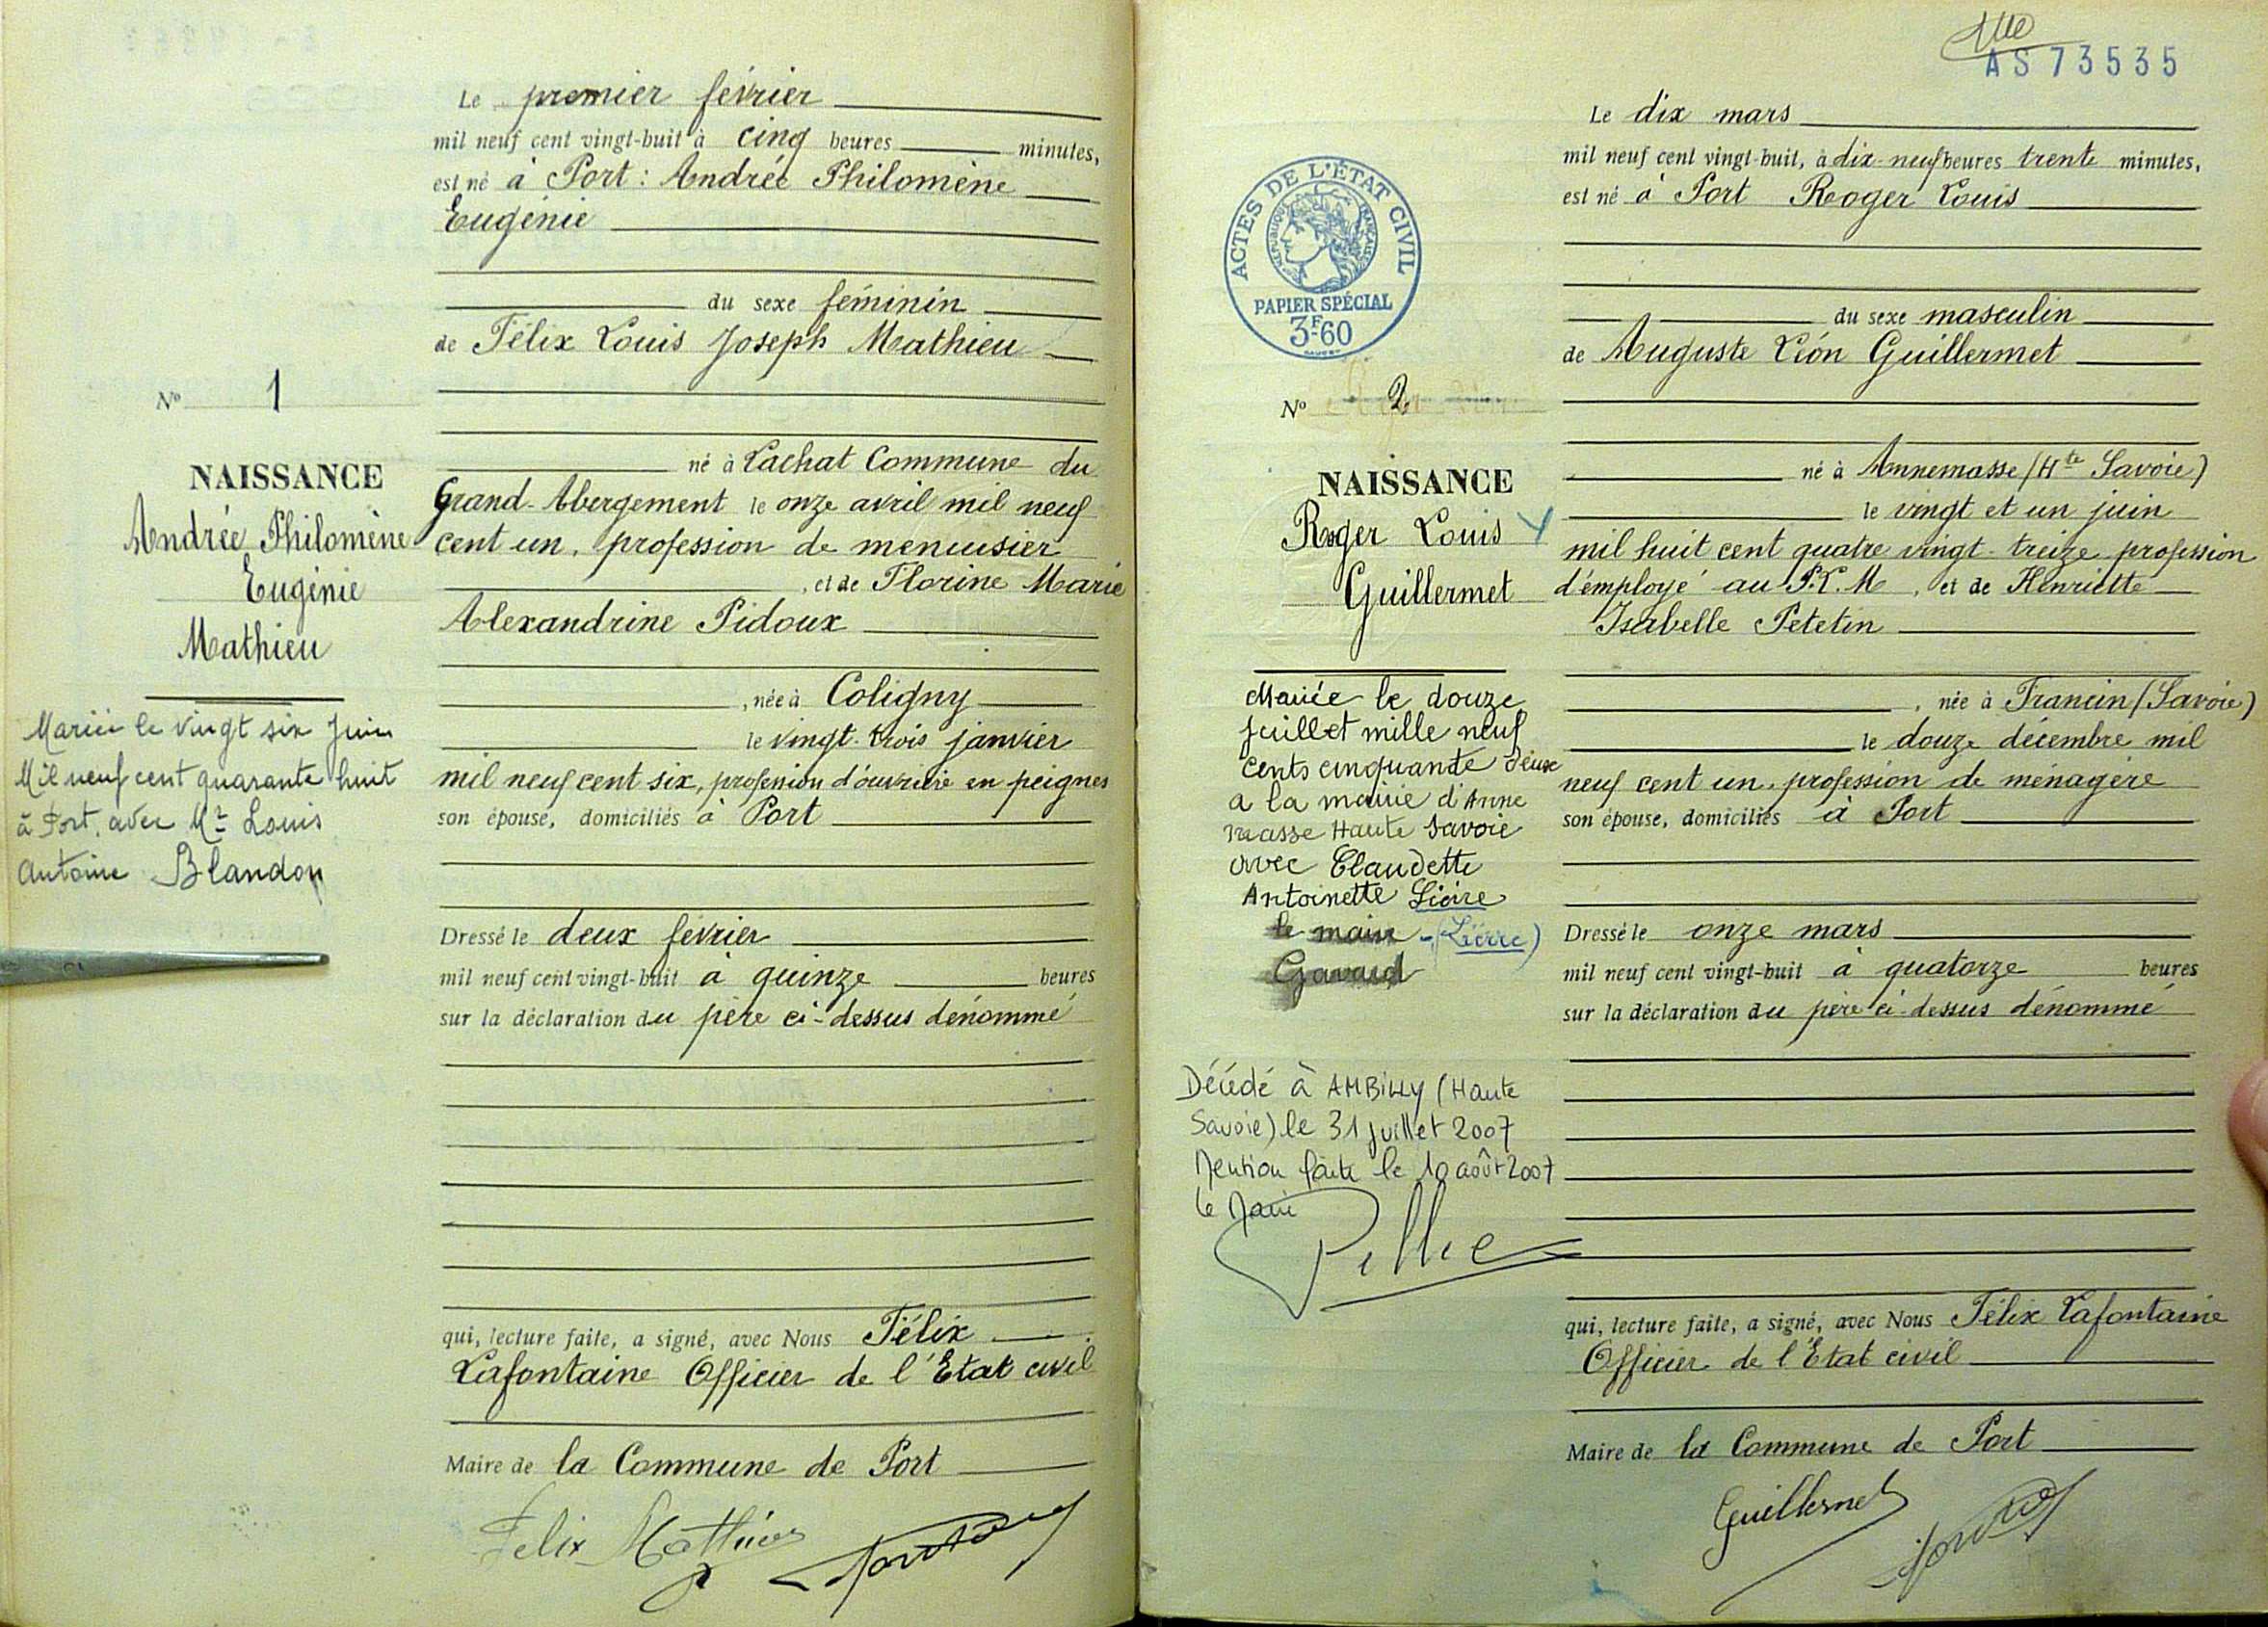 Le premier février
mil neuf cent vingt-huit à cinq heures minutes,
est né à Port : Andrée Philomène
Eugénie
du sexe féminin
de Félix Louis Joseph Mathieu
né à Lachat Commune du
Grand-Abergement le onze avril mil neuf
cent un, profession de menuisier
, et de Florine Marie
Alexandrine Pidoux
, née à Coligny
le vingt-trois janvier
mil neuf cent six, profession d'ouvrière en peignes
son épouse, domiciliés à Port
Dressé le deux février
mil neuf cent vingt-huit à quinze heures
sur la déclaration du père ci-dessus dénommé
qui, lecture faite, a signé, avec Nous Félix
Lafontaine Officier de l'Etat civil
Maire de la Commune de Port
Felix Mathieu
No 1
NAISSANCE
Andrée Philomène
Eugénie
Mathieu
Mariée le vingt six Juin
Mil neuf cent quarante huit
à Port, avec Mr Louis
Antoine Blandon
AS 73535
Le dix mars
mil neuf cent vingt-huit, à dix-neuf heures trente minutes,
est né à Port Roger Louis
du sexe masculin
de Auguste Léon Guillermet
né à Annemasse (Hte Savoie)
le vingt et un juin
mil huit cent quatre vingt-treize profession
d'employé au P.L.M, et de Henriette
Isabelle Petetin
, née à Francin (Savoie)
le douze décembre mil
neuf cent un, profession de ménagère
son épouse, domiciliés à Port
Dressé le onze mars
mil neuf cent vingt-huit à quatorze heures
sur la déclaration du père ci-dessus dénommé
qui, lecture faite, a signé, avec Nous Félix Lafontaine
Officier de l'Etat civil
Maire de la Commune de Port
Guillermet
ACTES DE L'ÉTAT CIVIL
RÉPUBLIQUE FRANÇAISE
PAPIER SPÉCIAL
3F60
No 2
NAISSANCE
Roger Louis
Guillermet
Mariée le douze
juillet mille neuf
cents cinquante deux
a la mairie d'Anne
masse Haute Savoie
avec Claudette
Antoinette
le maire
Gavard
Décédé à AMBILLY (Haute
Savoie) le 31 juillet 2007
Mention faite le 10 août 2007
le Maire